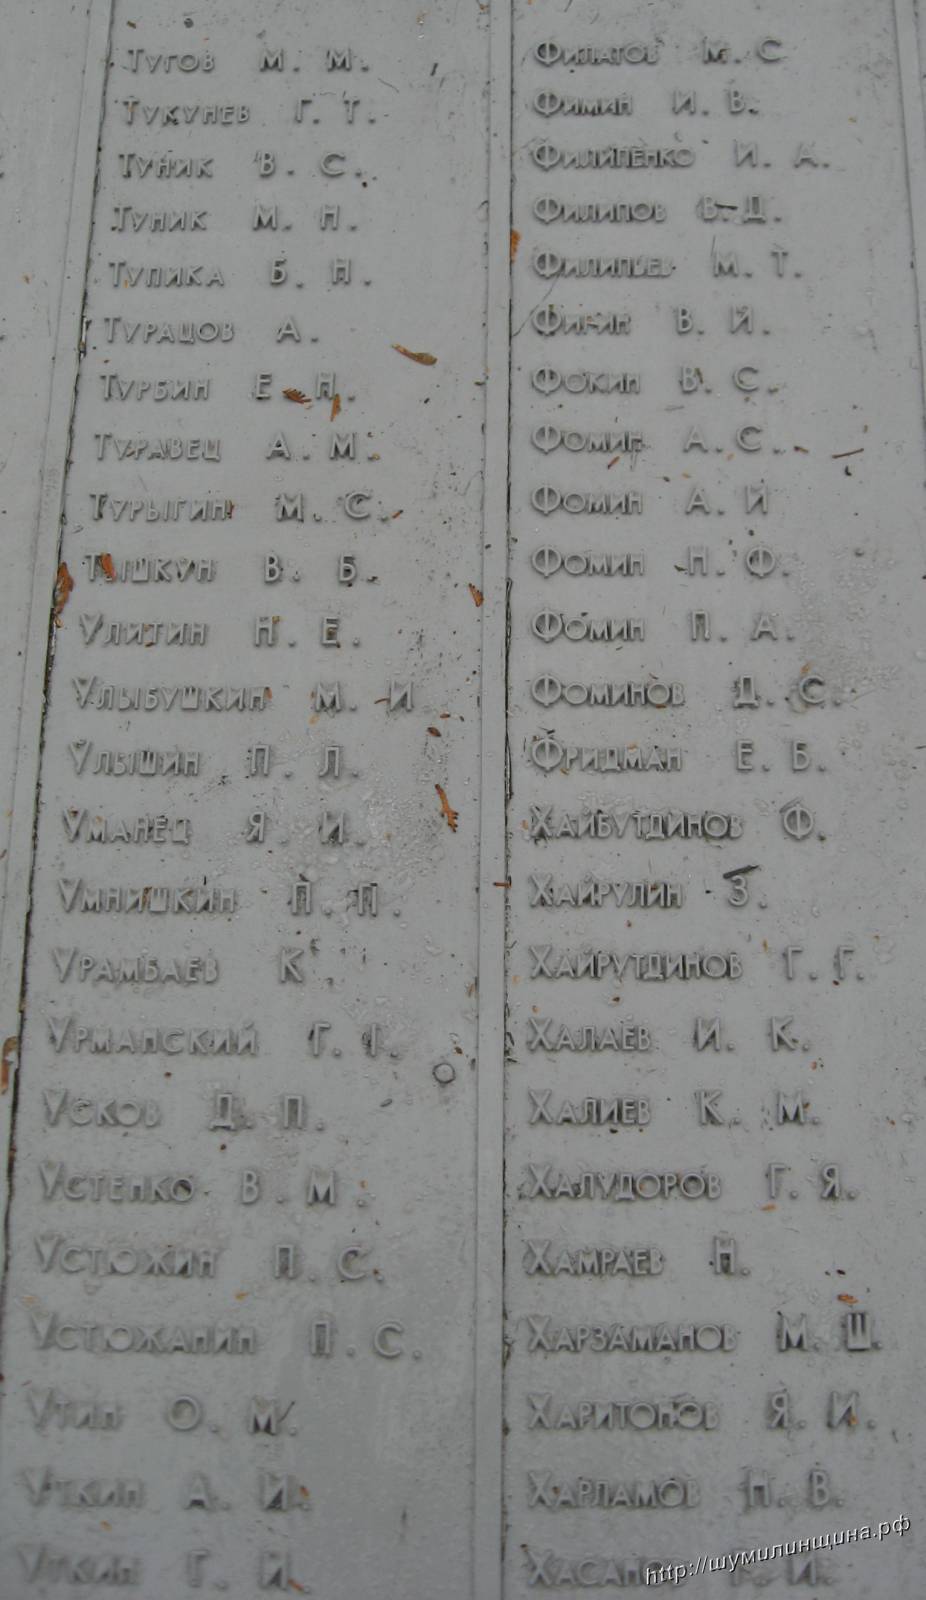 Тугов М. М.
Тукунев Г. Т.
Туник В. С.
Туник М. Н.
Тупика Б. Н.
Турацов А.
Турбин Е. Н.
Туравец А. М.
Турыгин М. С.
Тышкун В. Б.
Улитин Н. Е.
Улыбушкин М. И
Улышин П. Л.
Уманец Я. И.
Умнишкин П. П.
Урамбаев К
Урманский Г. Г.
Усков Д. П.
Устенко В. М.
Устюжин П. С.
Устюжанин П. С.
Утин О. М.
Уткин А. И.
Уткин Г. И.
Филатов М. С
Фимин И. В.
Филипенко И. А.
Филипов В. Д.
Филипьев М. Т.
Фичин В. И.
Фокин В. С.
Фомин А. С.
Фомин А. И
Фомин Н. Ф.
Фомин П. А.
Фоминов Д. С.
Фридман Е. Б.
Хайбутдинов Ф.
Хайрулин З.
Хайрутдинов Г. Г.
Халаев И. К.
Халиев К. М.
Халудоров Г. Я.
Хамраев Н.
Харзаманов М. Ш.
Харитонов Я. И.
Харламов Н. В.
Хасанов И.
http://шумилинщина.рф